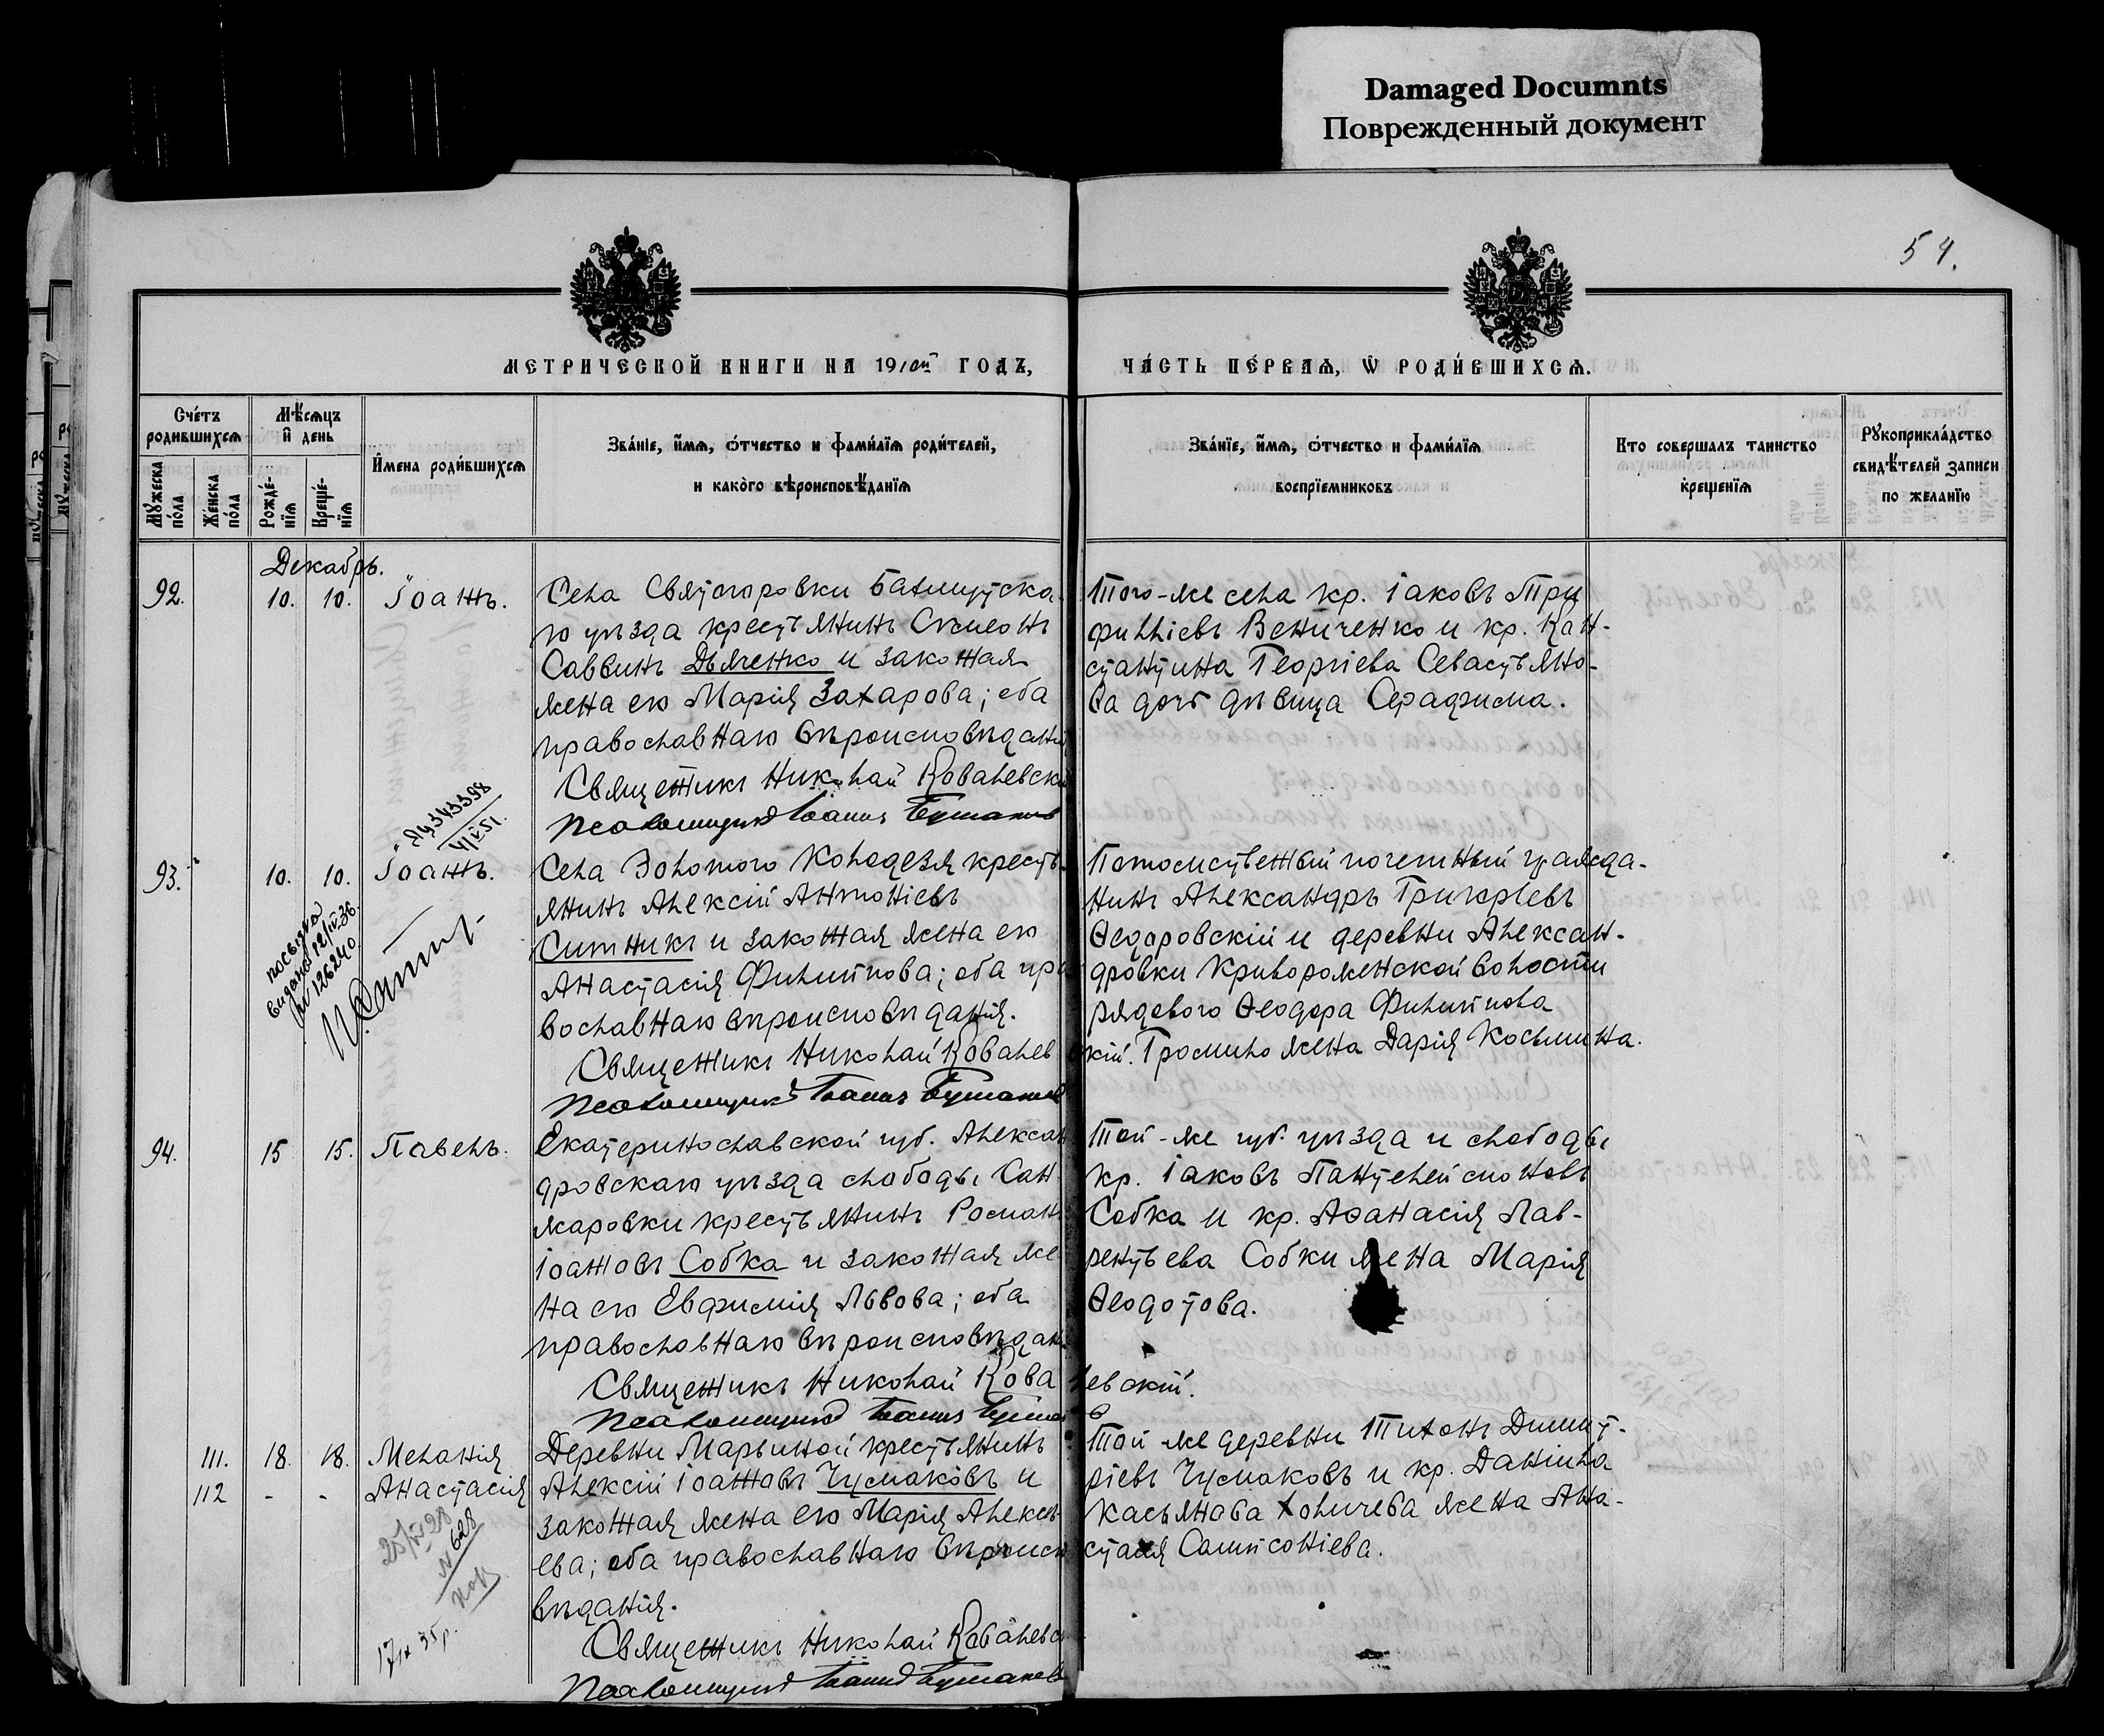 Damaged Documnts
Поврежденный документ
54.
МЕТРИЧЕСКОЙ КНИГИ НА 191ой ГОДЪ,
ЧАСТЬ ПЕРВАЯ, Ѡ РОДИВШИХСЯ.
Счетъ родившихся
Мѣсяцъ и день
Имена родившихся
Званіе, имя, отчество и фамилія родителей,
и какого вѣроисповѣданія
Мужеска пола
Женска пола
Рожде-нія
Креще-нія
Званіе, имя, отчество и фамилія
воспріемниковъ
Кто совершалъ таинство
крещенія
Рукоприкладство
свидѣтелей записи
по желанію
Декабрь.
92. 10. 10. Іоаннъ.
Села Святогоровки Бахмутска-
го уѣзда крестьянинъ Симеонъ
Саввинъ Дьяченко и законная
жена его Марія Захарова; оба
православнаго вѣроисповѣдані
Священникъ Николай Ковалевскі
Псаломщикъ Іоаннъ
Того-же села кр. Іаковъ Три
филліевъ Величенко и кр. Кон-
стантина Георгіева Севастьяно-
ва дочь дѣвица Серафима.
ЯЦ343398
93. 10. 10. Іоаннъ.
Села Золотого Колодезя кресть-
янинъ Алексій Антоніевъ
Ситникъ и законная жена его
Анастасія Филиппова; оба пра
вославнаго вѣроисповѣданія.
Священникъ Николай Ковалев
скій.
Псаломщикъ Іоаннъ
Потомственный почетный гражда-
нинъ Александръ Григорьевъ
Ѳедоровскій и деревни Алексан-
дровки Криворожской волости
рядового Ѳеодора Филиппова
Громило жена Дарія Косьмина.
№ 126240
94. 15 15. Павелъ.
Екатеринославской губ. Алексан
дровскаго уѣзда слободы Сан
жаровки крестьянинъ Роман
Іоанновъ Собка и законная же
на его Евфимія Львова; оба
православнаго вѣроисповѣдан.
Священникъ Николай Кова
левскій.
Псаломщикъ Іоаннъ
Той-же губ. уѣзда и слободы
кр. Іаковъ Пантелеймоновъ
Собка и кр. Аѳанасія Лав-
рентьева Собки жена Марія
Ѳеодотова.
111. 18. 18. Меланія
112 - - Анастасія
Деревни Марьиной крестьянинъ
Алексій Іоанновъ Чумаковъ и
законная жена его Марія Алексѣ-
ева; оба православнаго вѣроиспо
вѣданія.
Священникъ Николай Ковалевс
Псаломщикъ Іоаннъ
Той же деревни Тихонъ Димит-
ріевъ Чумаковъ и кр. Даніила
Касьянова Холичева жена Ана-
стасія Сампсоніева.
N 628